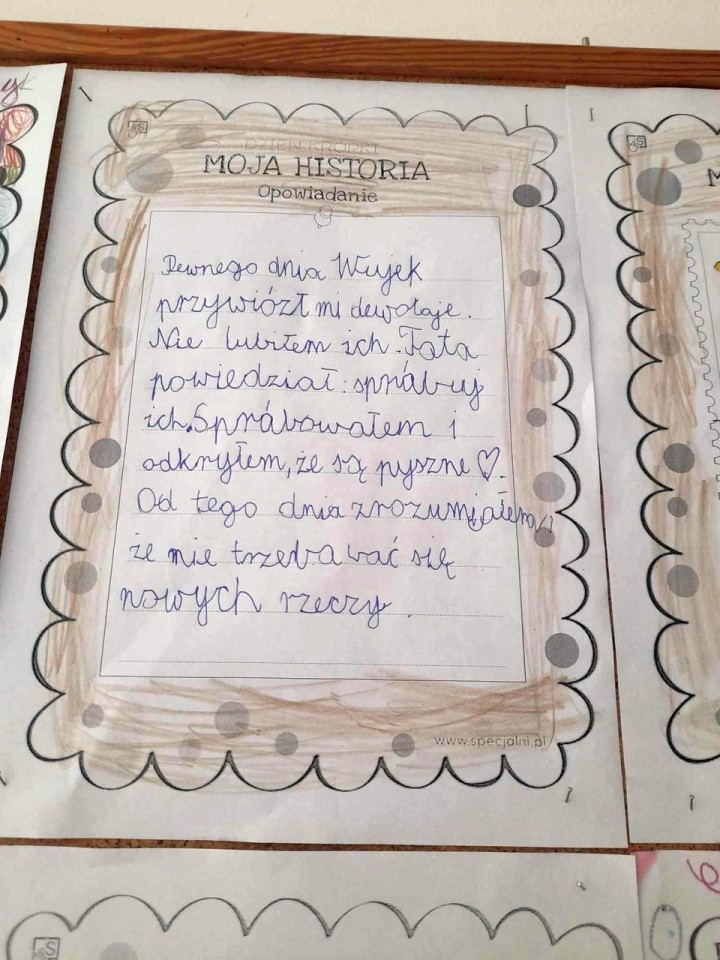 DZIEŃ KROPKI
MOJA HISTORIA
Opowiadanie
Pewnego dnia Wujek
przywiózł mi dewolaje.
Nie lubiłem ich. Tata
powiedział: sprábuj
ich. Sprábowałem i
odkryłem, że są pyszne ♡.
Od tego dnia zrozumiałem,
że nie trzeba wać się
nowych rzeczy.
www.specjalni.pl